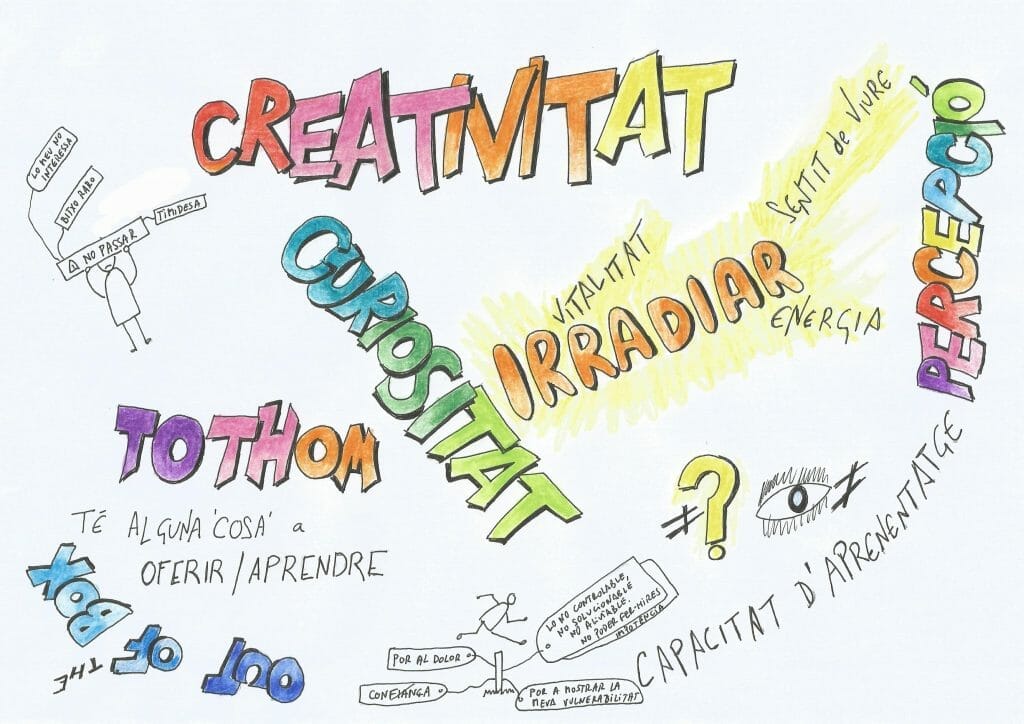 CREATIVITAT
LO MEU NO
INTERESSA
BITXO RARO
TIMIDESA
NO PASSAR
CURIOSITAT
SENTIT de VIURE
VITALITAT
IRRADIAR
ENERGIA
PERCEPCIÓ
TOTHOM
TÉ ALGUNA 'COSA' a
OFERIR/APRENDRE
OUT
OF
THE
BOX
≠ ? ≠
CAPACITAT D'APRENENTATGE
LO NO CONTROLABLE,
NO SOLUCIONABLE
NO ALIVIABLE.
NO PODER FER-HI RES
IMPOTÈNCIA
POR AL DOLOR
CONFIANÇA
POR A MOSTRAR LA
MEVA VULNERABILITAT